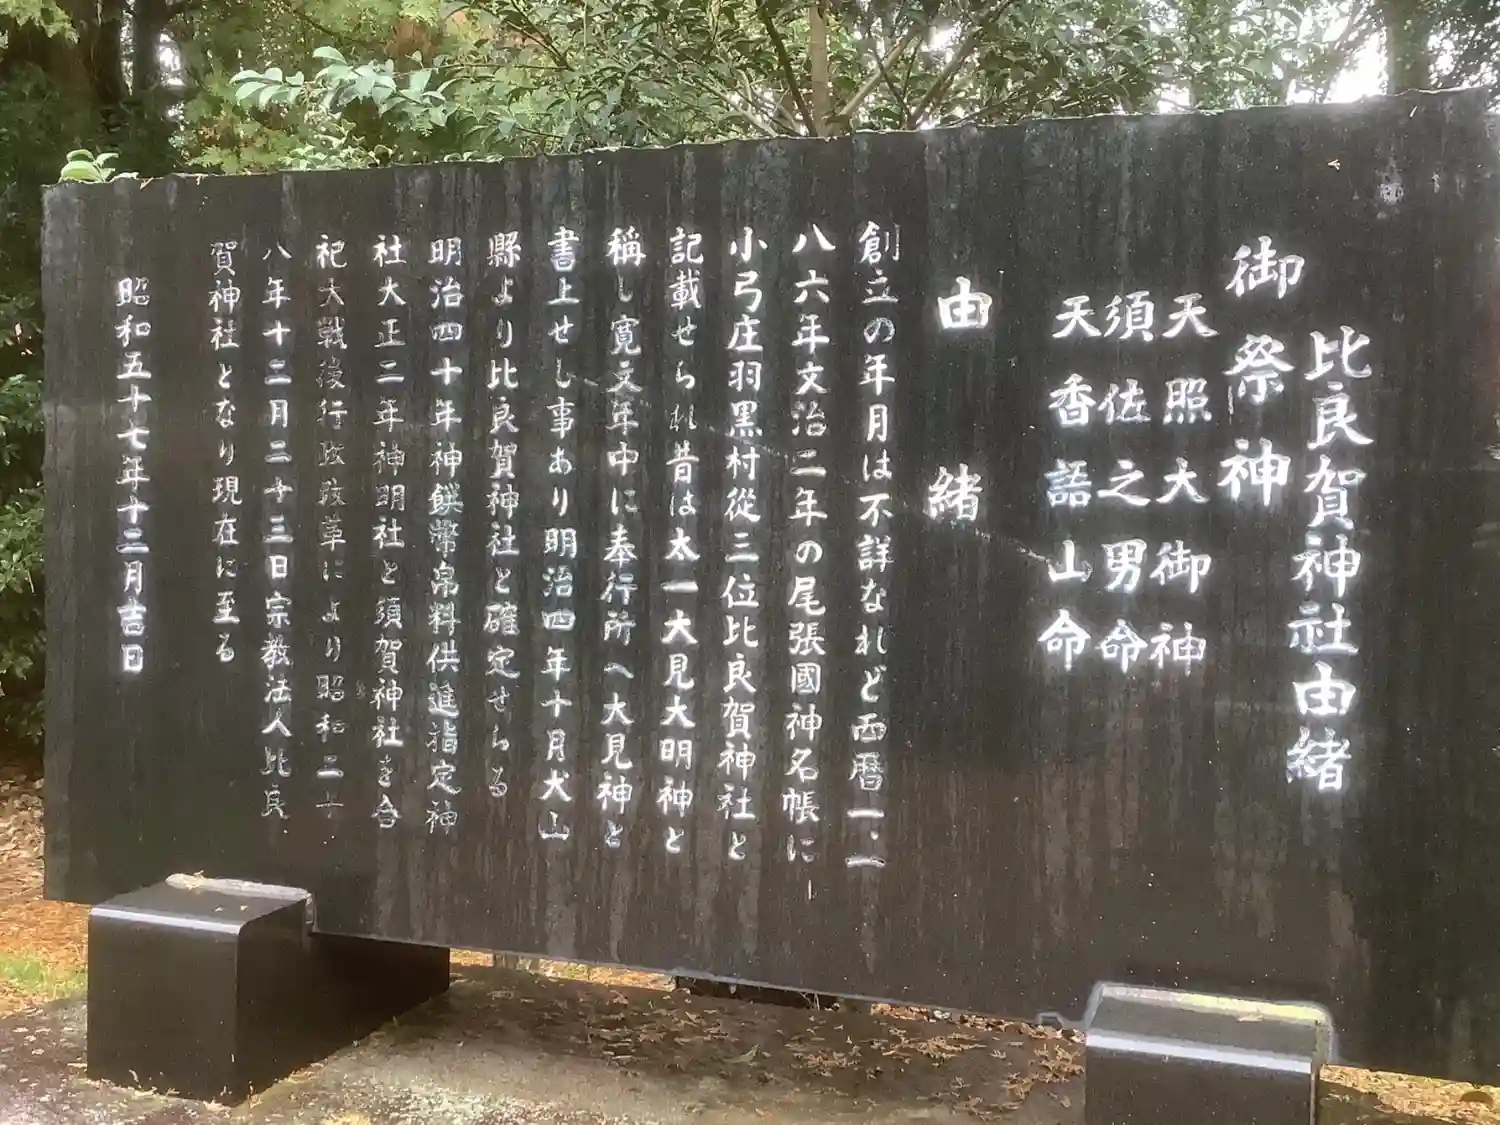 比良賀神社由緒
御祭神
天照大御神
須佐之男命
天香語山命
由緒
創立の年月は不詳なれど西暦一、一
八六年文治二年の尾張國神名帳に
小弓庄羽黒村從三位比良賀神社と
記載せられ昔は太一大見大明神と
稱し寛文年中に奉行所へ大見神と
書上せし事あり明治四年十月犬山
縣より比良賀神社と確定せらる
明治四十年神饌幣帛料供進指定神
社大正二年神明社と須賀神社を合
祀大戰後行政改革により昭和二十
八年十二月二十三日宗教法人比良
賀神社となり現在に至る
昭和五十七年十二月吉日